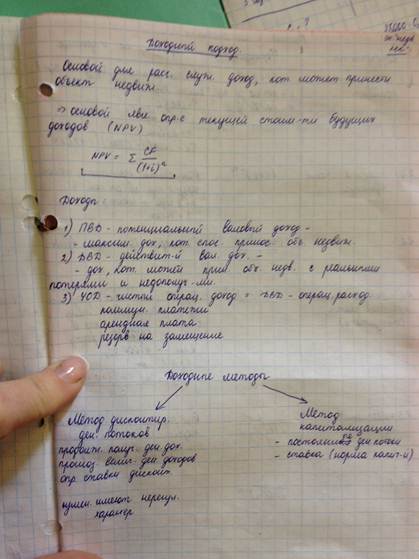 Доходный подход.
Основой для расс. служ. доход, кот. может принести
объект недвиж.
⇒ основой явл. опр-е текущей стоим-ти будущих
доходов (NPV)
NPV = Σ CF/(1+i)ⁿ
Доходы
1) ПВД - потенциальный валовый доход -
- максим. дох, кот. спос. принос. об. недвиж.
2) ДВД - действит-й вал. дох. -
- дох, кот. может прин. об. недв. с реальными
потерями и недополуч-ми.
3) ЧОД - чистый операц. доход = ДВД - операц. расход.
коммун. платежи
арендная плата
резерв на замещение
Доходные методы
Метод дисконтир.
ден. потоков
ден. дох.
ден. доходов
опр. ставки дисконт.
имеют нерегул.
характер
Метод
капитализации
- ден. потоки
- ставка (норма капит-и)